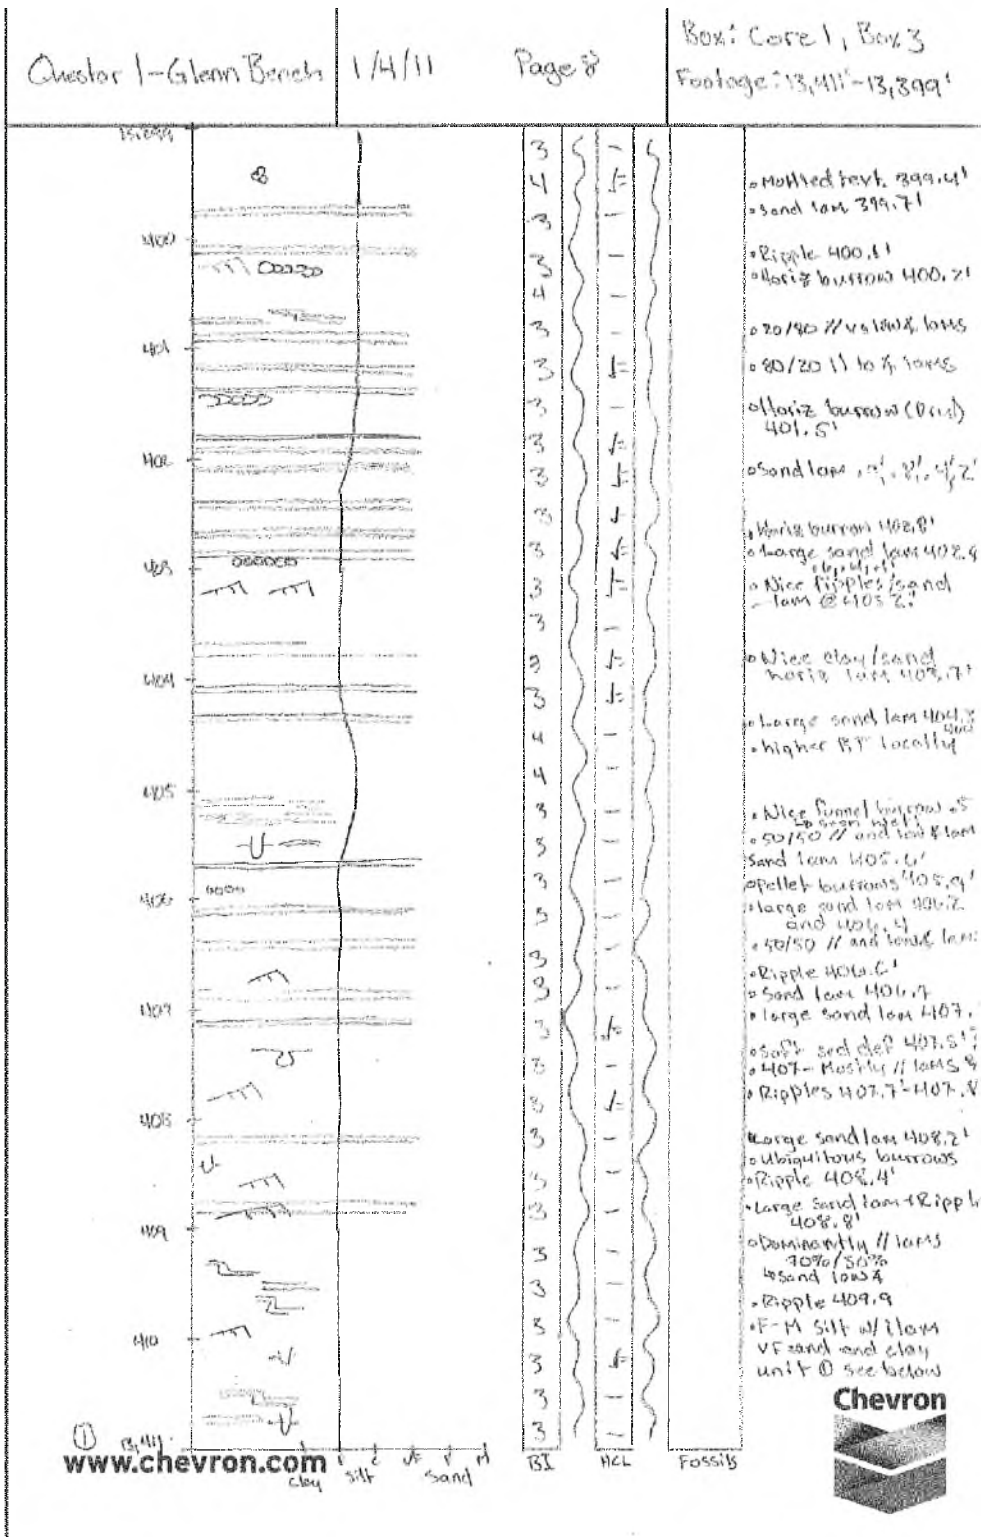 Questar 1-Glenn Bench
1/4/11
Page 8
Box: Core 1, Box 3
Footage: 13,411'-13,399'
13,399
400
401
402
403
404
405
406
407
408
409
410
① 13,411
Clay Silt Sand
F C VF F M
BI HCL Fossils
3
4
3
3
4
3
3
3
3
3
3
3
3
3
3
3
4
4
3
3
3
3
3
3
3
3
3
3
3
3
3
3
3
3
3
3
• Mottled text. 399.4'
• Sand lam 399.7'
• Ripple 400.1'
• Horiz burrow 400.2'
• 20/80 // v low∡ lams
• 80/20 // lo ∡ lams
• Horiz burrow
401.5'
• Sand lam
• Horiz burrow 402.8'
• Large sand lam 402.9
• Nice ripples/sand
lam @ 403.2'
• Nice clay/sand
horiz lam 403.7'
• Large sand lam 404.
• higher BI locally
• Nice funnel burrow .5
• 50/50 // and low ∡ lam
Sand lam 405.6'
• pellet burrows 405.9'
• large sand lam 406.2
and 406.4
• 50/50 // and low∡ lam
• Ripple 406.6'
• Sand lam 406.7
• large sand lam 407.
• Soft sed def 407.5'
• 407- Mostly // lams
• Ripples 407.7'-407.8
Large sand lam 408.2'
• Ubiquitous burrows
• Ripple 408.4'
• Large Sand lam + Ripple
408.8'
• Dominantly // lams
70%/30%
↳ Sand low∡
• Ripple 409.9
• F-M Silt w/ lam
VF sand and clay
unit ① see below
www.chevron.com
Chevron